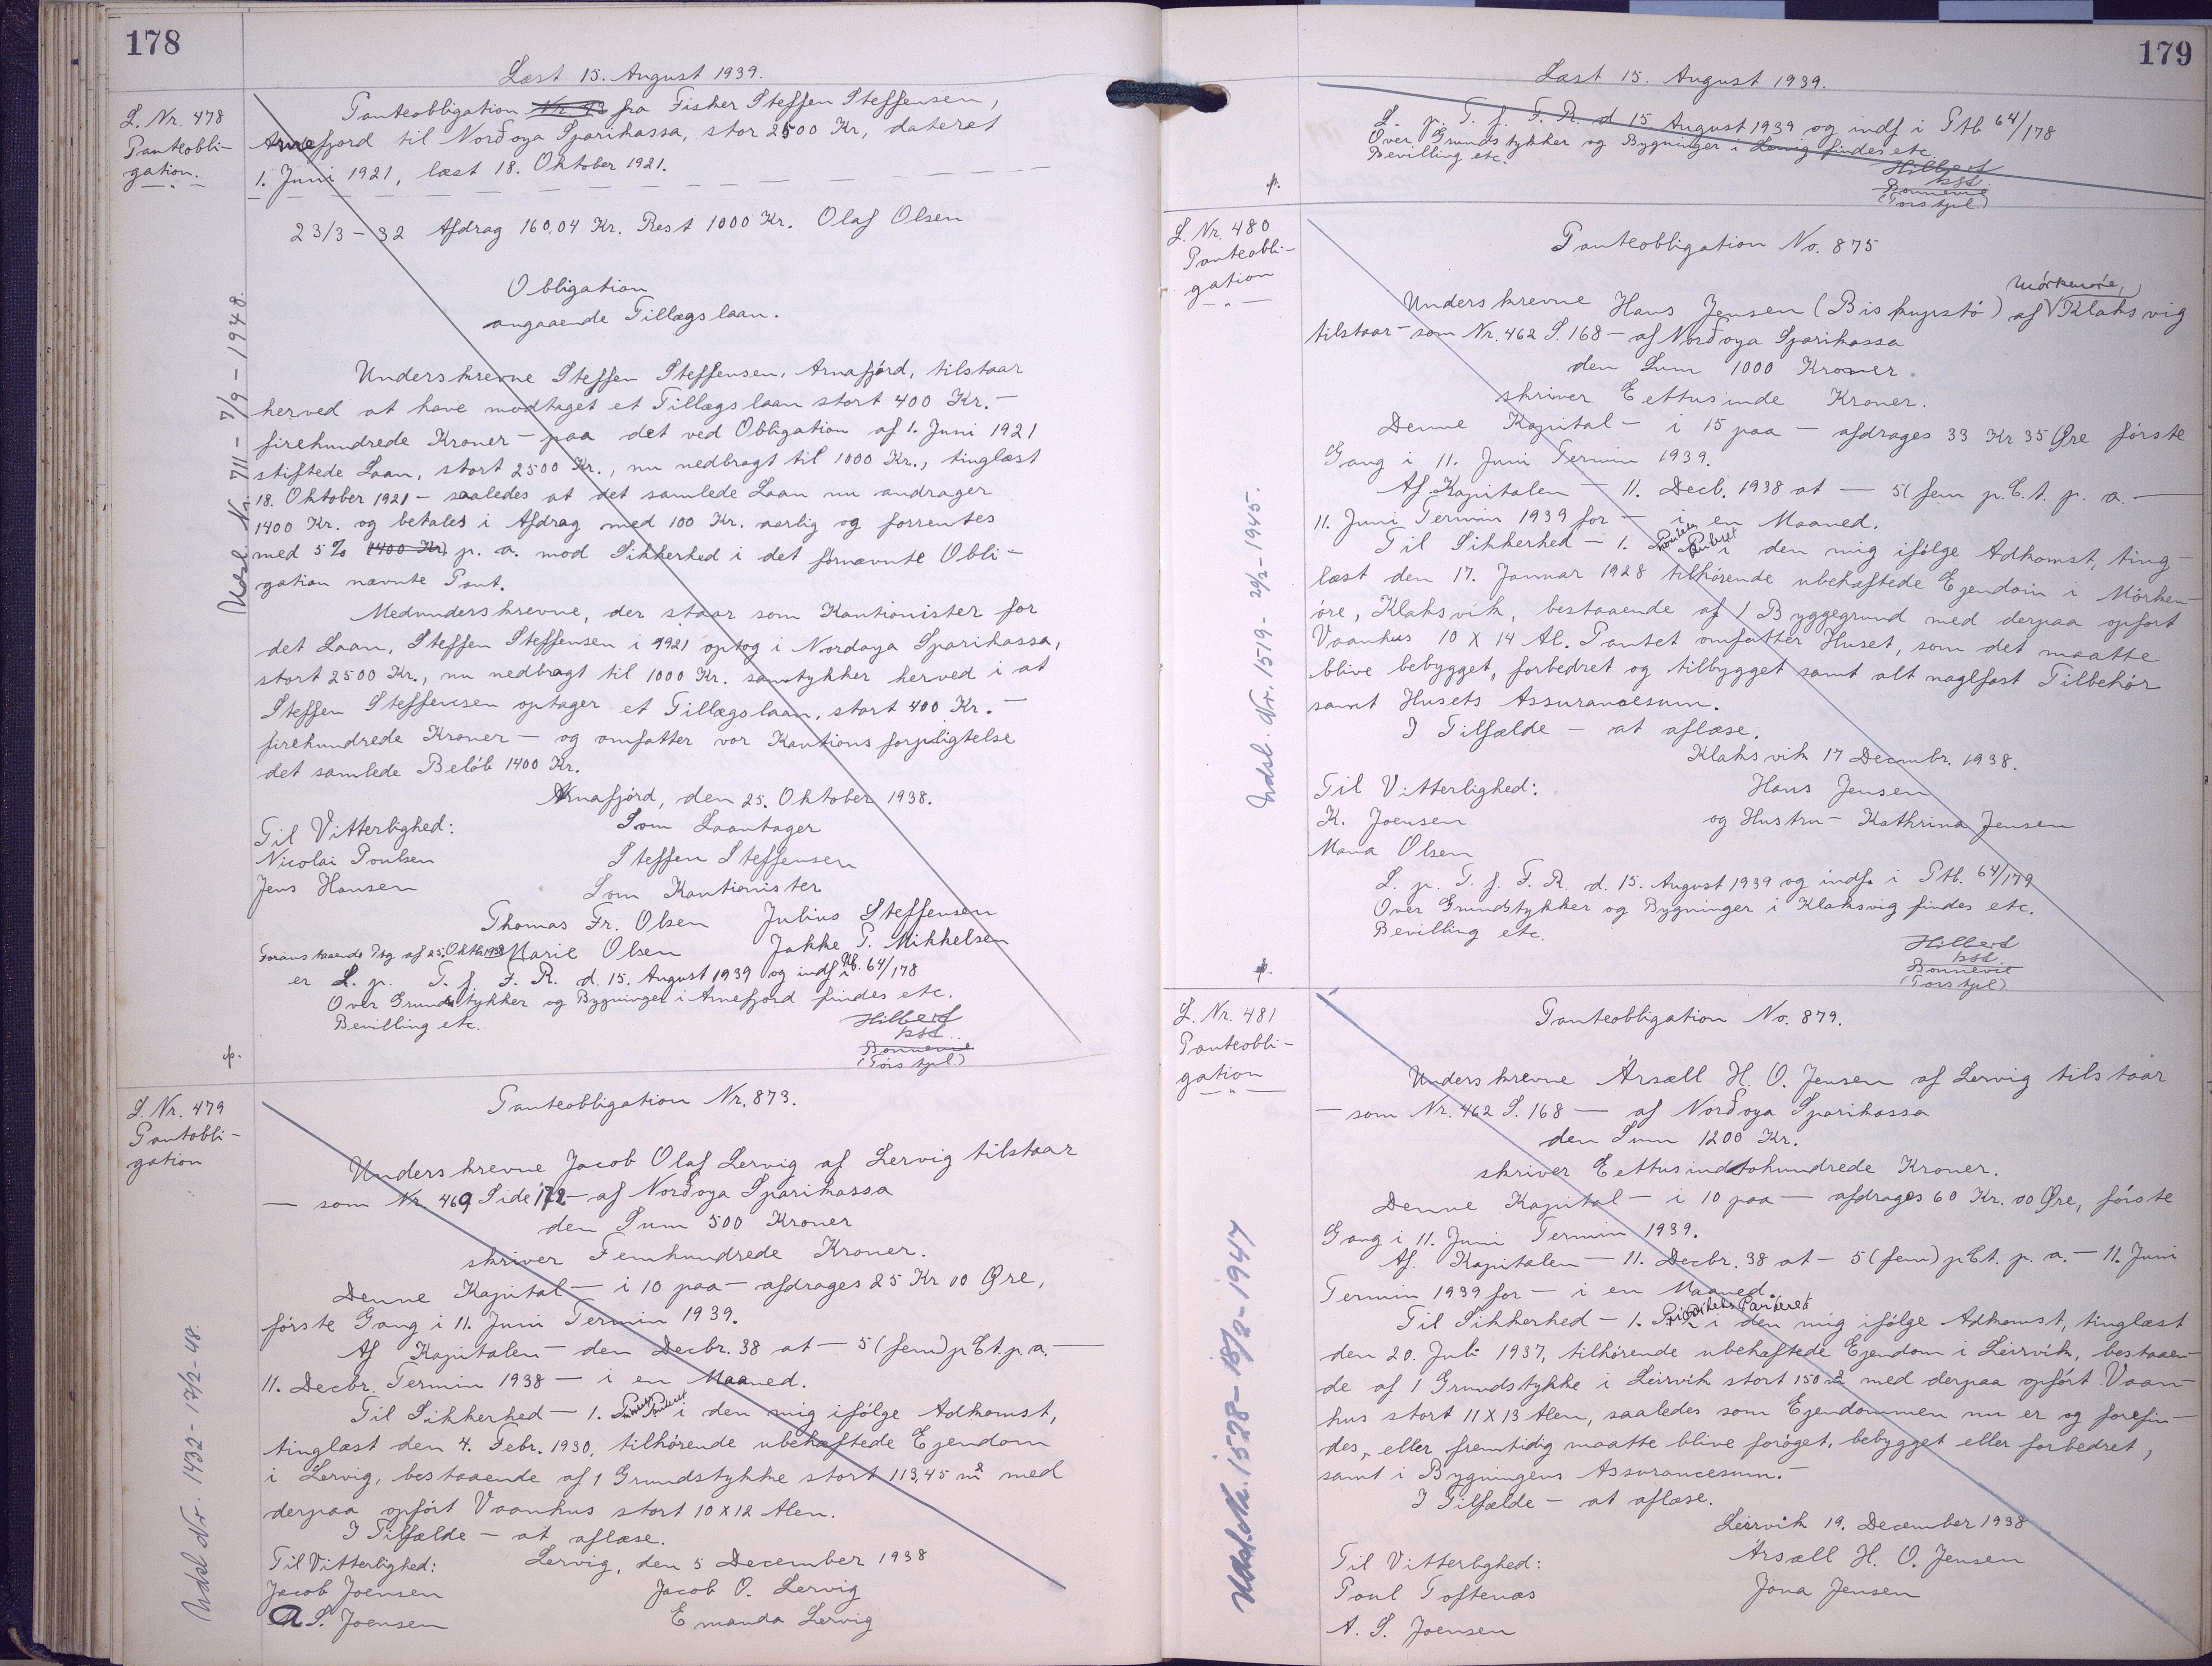 178
Læst 15. August 1939.
L. Nr. 478
Panteobli-
gation.
Panteobligation fra Fisker Steffen Steffensen,
Arnefjord til Norðoya Sparikassa, stor 2500 Kr, dateret
1. Juni 1921, læst 18. Oktober 1921.
23/3 - 32 Afdrag 160,04 Kr. Rest 1000 Kr. Olaf Olsen
Obligation
angaaende Tillægslaan.
Underskrevne Steffen Steffensen, Arnafjørd, tilstaar
herved at have modtaget et Tillægslaan stort 400 Kr. -
firehundrede Kroner - paa det ved Obligation af 1. Juni 1921
stiftede Laan, stort 2500 Kr., nu nedbragt til 1000 Kr., tinglæst
18. Oktober 1921 - saaledes at det samlede Laan nu andrager
1400 Kr. og betales i Afdrag med 100 Kr. aarlig og forrentes
med 5% 1400 Kr. p. a. mod Sikkerhed i det fornævnte Obli-
gation nævnte Pant.
Medunderskrevne, der staar som Kautionister for
det Laan, Steffen Steffensen i 1921 optog i Nordoya Sparikassa,
stort 2500 Kr., nu nedbragt til 1000 Kr. samtykker herved i at
Steffen Steffensen optager et Tillægslaan, stort 400 Kr. -
firehundrede Kroner - og omfatter vor Kautionsforpligtelse
det samlede Beløb 1400 Kr.
Arnafjørd, den 25. Oktober 1938.
Til Vitterlighed: Som Laantager
Nicolai Poulsen Steffen Steffensen
Jens Hansen Som Kautionister
Thomas Fr. Olsen Julius Steffensen
Foranstaaende Obg af 25. Oktb 1938 Marie Olsen Jakke T. Mikkelsen
er L. p. T. f. F. R. d. 15. August 1939 og indf i Ptb. 64/178
Over Grundstykker og Bygninger i Arnefjord findes etc.
Bevilling etc.
Hilbert
kst.
Bonnevie
(Tórs sysl)
p.
Udsl. Nr. 711 - 7/9 - 1948.
L. Nr. 479
Pantobli-
gation
Panteobligation Nr. 873.
Underskrevne Jacob Olaf Lervig af Lervig tilstaar
- som Nr. 469 Side 172 - af Norðoya Sparikassa
den Sum 500 Kroner
skriver Femhundrede Kroner.
Denne Kapital - i 10 paa - afdrages 25 Kr 00 Øre,
første Gang i 11. Juni Termin 1939.
Af Kapitalen - den Decbr. 38 at - 5 (fem) p Ct. p. a. -
11. Decbr. Termin 1938 - i en Maaned.
Til Sikkerhed - 1. Prioritets Panteret i den mig ifølge Adkomst,
tinglæst den 4. Febr. 1930, tilhørende ubehæftede Ejendom
i Lervig, bestaaende af 1 Grundstykke stort 113,45 m² med
derpaa opført Vaanhus stort 10 x 12 Alen.
I Tilfælde - at aflæse.
Til Vitterlighed: Lervig, den 5 December 1938
Jacob Joensen Jacob O. Lervig
A S. Joensen Emanda Lervig
Udsl Nr. 1432 - 17/2 - 48.
179
Læst 15. August 1939.
L. p. T. f. F. R. d 15. August 1939 og indf i Ptb 64/178
Over Grundstykker og Bygninger i Lervig findes etc.
Bevilling etc.
Hilbert
kst.
Bonnevie
(Tórs sysl.)
p.
L. Nr. 480
Panteobli-
gation
Panteobligation No. 875
Underskrevne Hans Jensen (Biskupstó) af Mórkenóre, Klaksvig
tilstaar - som Nr. 462 S. 168 - af Norðoya Sparikassa
den Sum 1000 Kroner
skriver Eettusinde Kroner.
Denne Kapital - i 15 paa - afdrages 33 Kr 35 Øre første
Gang i 11. Juni Termin 1939.
Af Kapitalen - 11. Decb. 1938 at - 5 (fem p. C. t. p. a. -
11. Juni Termin 1939 for - i en Maaned.
Til Sikkerhed - 1. Prioritets Panteret i den mig ifølge Adkomst, ting-
læst den 17. Januar 1928 tilhørende ubehæftede Ejendom i Mörken-
öre, Klaksvik, bestaaende af 1 Byggegrund med derpaa opført
Vaanhus 10 x 14 Al. Pantet omfatter Huset, som det maatte
blive bebygget, forbedret og tilbygget samt alt naglfast Tilbehör
samt Husets Assurancesum.
I Tilfælde - at aflæse.
Klaksvik 17 Decmbr. 1938.
Til Vitterlighed: Hans Jensen
K. Joensen og Hustru - Kathrina Jensen
Mana Olsen
L. p. T. f. F. R. d. 15. August 1939 og indf. i Ptb. 64/179
Over Grundstykker og Bygninger i Klaksvig findes etc.
Bevilling etc.
Hilbert
kst
Bonnevie
(Tórs sysl)
p.
Udsl. Nr. 1519 - 2/2 - 1945.
L. Nr. 481
Panteobli-
gation
Panteobligation No. 879.
Underskrevne Ársæll H. O. Jensen af Lervig tilstaar
- som Nr. 462 S. 168 - af Norðoya Sparikassa
den Sum 1200 Kr.
skriver Eettusindetohundrede Kroner.
Denne Kapital - i 10 paa - afdrages 60 Kr. 00 Øre, første
Gang i 11. Juni Termin 1939.
Af Kapitalen - 11. Decbr. 38 at - 5 (fem) p Ct. p. a. - 11. Juni
Termin 1939 for - i en Maaned.
Til Sikkerhed - 1. Prioritets Panteret i den mig ifølge Adkomst, tinglæst
den 20. Juli 1937, tilhørende ubehæftede Ejendom i Leirvík, bestaaen-
de af 1 Grundstykke i Leirvík stort 150 m² med derpaa opført Vaan-
hus stort 11 X 13 Alen, saaledes som Ejendommen nu er og forefin-
des, eller fremtidig maatte blive forøget, bebygget eller forbedret,
samt i Bygningens Assurancesum. -
I Tilfælde - at aflæse.
Leirvík 19. December 1938
Til Vitterlighed: Ársæll H. O. Jensen
Poul Toftenæs Jona Jensen
A. S. Joensen
Udsl. Nr. 1528 - 18/2 - 1947